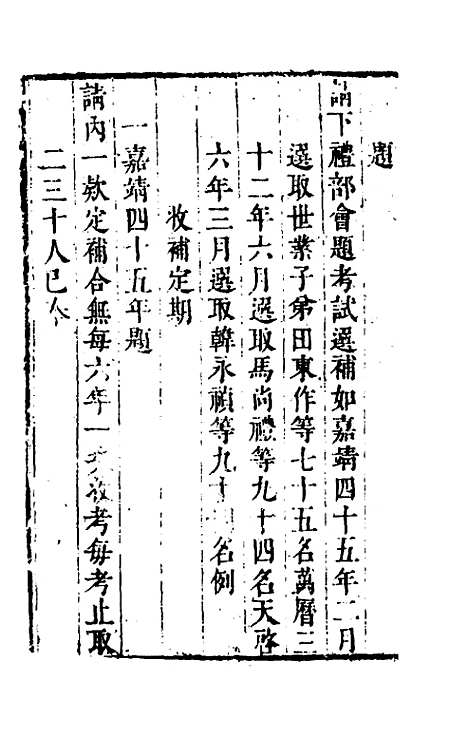 題
請下禮部會題考試選補如嘉靖四十五年二月
選取世業子弟田東作等七十五名萬曆三
十二年六月選取馬尚禮等九十四名天啓
六年三月選取韓永禎等九十名例
收補定期
一嘉靖四十五年題
請內一欵定補合無每六年一收考每考止取
二三十人已